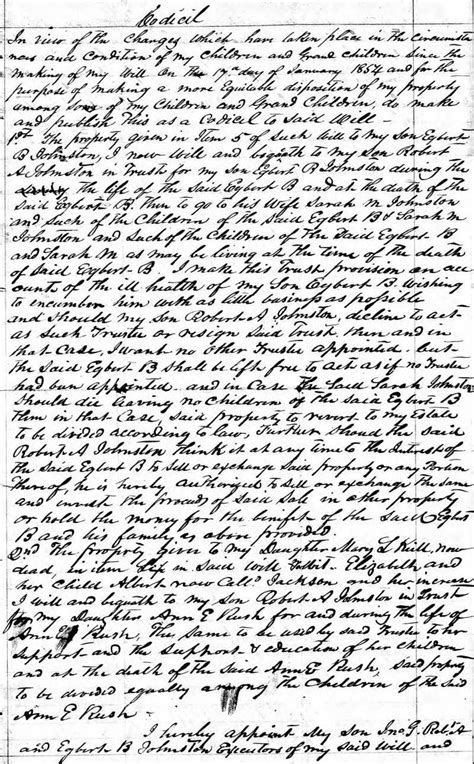 Codicil
In view of the Changes which have taken place in the Circumsta
nces and Condition of my Children and Grand Children since the
making of my Will On the 17th day of January 1854 and for the
purpose of making a more Equitable disposition of my property
among some of my Children and Grand Children, do make
and publish this as a Codicil to said Will
1st The property given in Item 5 of such Will to my Son Egbert
B Johnston, I now Will and bequath to my Son Robert
A Johnston in Trust for my Son Egbert B Johnston during the
the life of the Said Egbert B and at the death of the
Said Egbert B. then to go to his Wife Sarah M Johnston
and Such of the Children of the Said Egbert B & Sarah M
Johnston and Such of the Children of The Said Egbert B
and Sarah M as may be living at the time of the death
of Said Egbert B I make this Trust provision on acc
ount of the ill health of my Son Egbert B. Wishing
to encumber him with as little business as possible
and Should my Son Robert A Johnston, decline to act
as Such Trustee or resign Said Trust then and in
that Case, I want no other Trustee appointed but
the Said Egbert B Shall be left free to act as if no Trustee
had been appointed and in Case the Said Sarah Johnston
Should die leaving no Children of the Said Egbert B
them in that Case, said property to revert to my Estate
to be divided according to law, Further should the Said
Robert A Johnston think it at any time to the Interest of
the Said Egbert B to Sell or exchange Said property or any Portion
thereof, he is hereby authorized to Sell or exchange the same
and invest the proceeds of Said Sale in other property
or hold the money for the benefit of the Said Egbert
B and his family as above provided
2nd The property given to my Daughter Mary L Hill, now
dead, in item Six in Said Will Elizabeth and
her Child Albert now Calld Jackson and her increase
I will and bequath to my Son Robert A Johnston in Trust
for my Daughter Ann E Rush for and during the life of
Ann E Rush, The Same to be used by Said Trustee to her
Support and the Support & education of her Children
and at the death of the Said Ann E Rush, Said property
to be divided equally among the Children of the Said
Ann E Rush
I hereby appoint My Son Jno G Robt A
and Egbert B Johnston Executors of my Said Will and